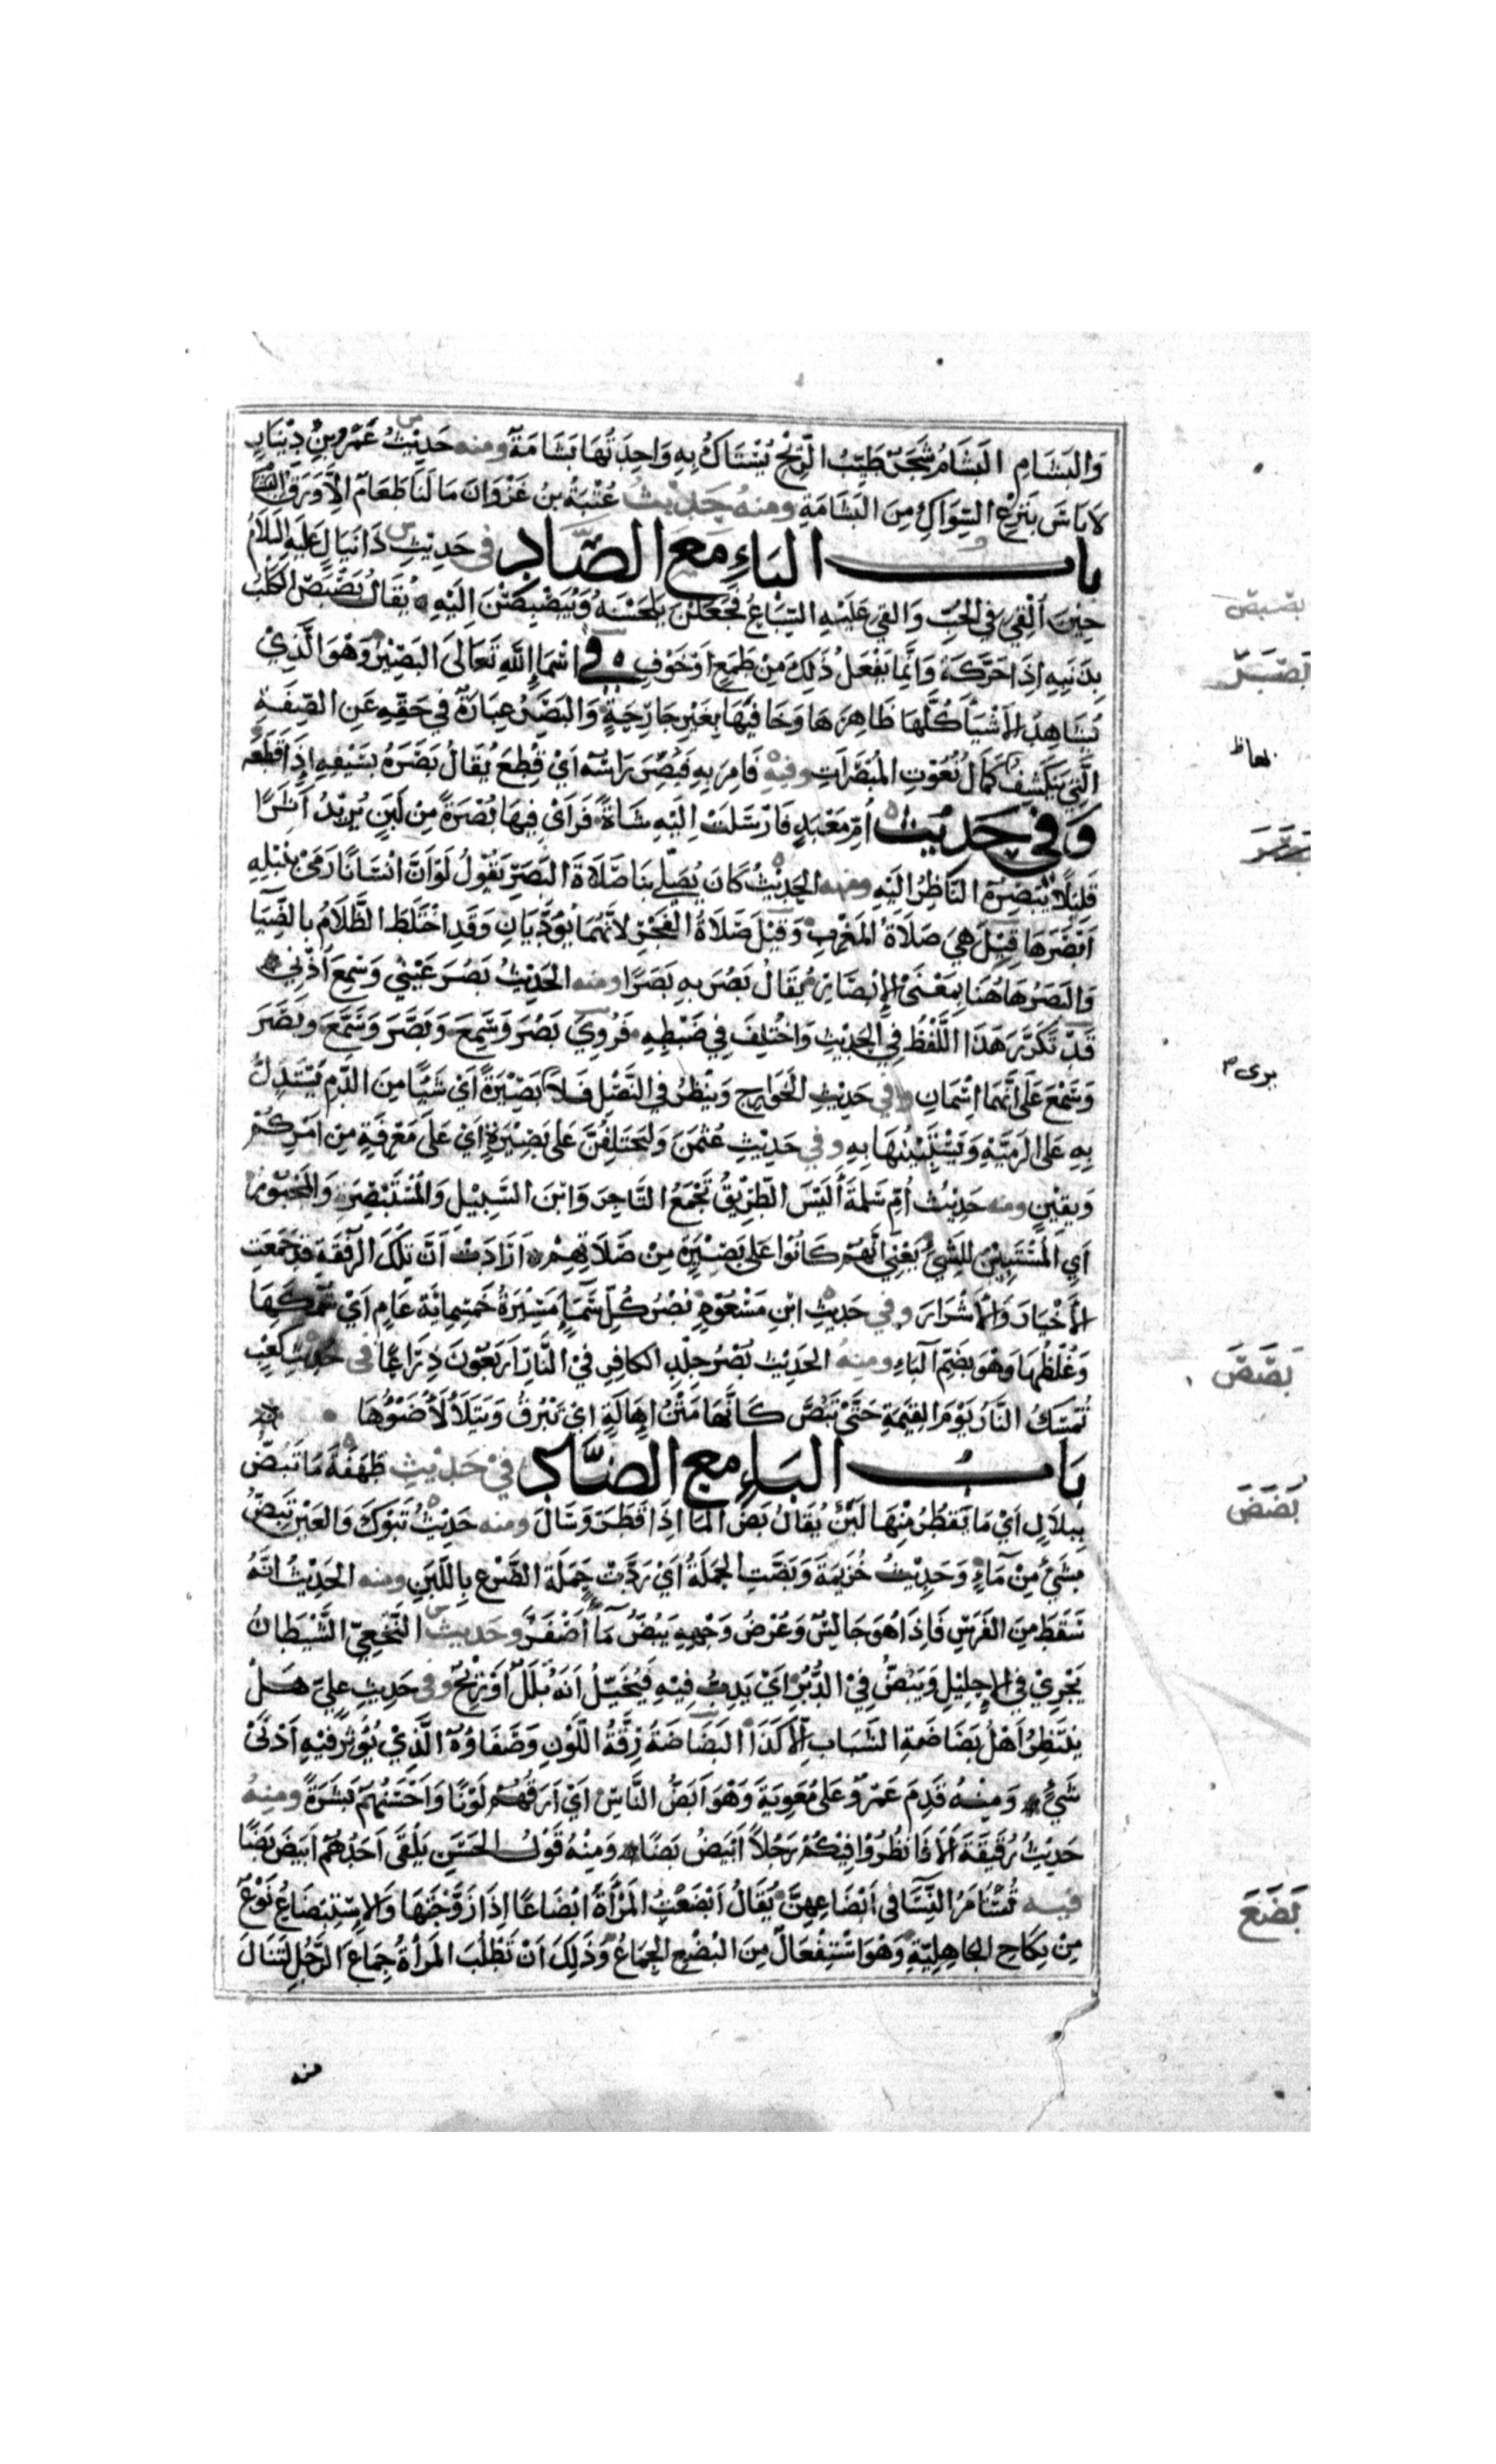 وَالبَشَامِ البَشَامُ شَجَرٌ طَيِّبُ الرِّيْحِ يُسْتَاكُ بِهِ وَاحِدَتُهَا بَشَامَةٌ ومنه حَدِيْثُ عَمْرِو بْنِ دِيْنَارٍ
لَا بَاسَ بِنَزْعِ السِّوَاكِ مِنَ البَشَامَةِ ومنهُ حَدِيْثُ عُتْبَةُ بنُ غَزْوَانَ مَا لَنَا طَعَامٌ اِلَّا وَرَقُ البشام
بابــــ البَاءِ مَعَ الصَّادِ في حَدِيْثِ دَانيَالَ عَلَيهِ السَّلَامُ
حِيْنَ اُلْقِيَ فِي الجُبِّ وَالقي عَلَيْهِ السِّبَاعُ فَجَعَلْنَ يَلْحَسْنَهُ وَيُبَصْبِصْنَ اِلَيْهِ يُقَالُ بَصْبَصَ الكَلْبُ
بِذَنَبِهِ اِذَا حَرَّكَهُ وَاِنَّمَا يَفْعَلُ ذَلِكَ مِنْ طَمَعٍ اَوْ خَوْفٍ في اَسْمَاءِ اللهِ تَعَالَى البَصِيْرُ وَهُوَ الَّذِيْ
يُشَاهِدُ الاَشْيَاَ كُلَّهَا ظَاهِرَهَا وَخَافِيَهَا بِغَيْرِ جَارِحَةٍ وَالبَصَرُ عِبَارَةٌ فِي حَقِّهِ عَنِ الصِّفَةِ
الَّتِي يَنْكَشِفُ كَمَالُ نُعُوْتِ المُبْصَرَاتِ وفيهِ فَاَمَرَ بِهِ فَبُصِرَ رَاسُهُ اَيْ قُطِعَ يُقَالُ بَصَرَهُ بِسَيْفِهِ اِذَا قَطَعَه
وَفي حَدِيْثِ اُمِّ مَعْبَدٍ فَارْسَلَتْ اِلَيْهِ شَاةً فَرَاَى فِيهَا بُصْرَةً مِنْ لَبَنٍ يُرِيْدُ اَثَرًا
قَلِيْلًا يُبْصِرُهُ النَّاظِرُ اِلَيْهِ ومنه الحَدِيْثُ كَانَ يُصَلِّي بِنَا صَلَاةَ البَصَرِ يَقُوْلُ لَوْ اَنَّ اِنْسَانًا رَمَى بِنَبْلِهِ
اَبْصَرَهَا قِيْلَ هِيَ صَلَاةُ المَغْرِبِ وَقِيْلَ صَلَاةُ الفَجْرِ لاَنَّهُمَا يُؤَدَّيَانِ وَقَدِ اخْتَلَطَ الظَّلَامُ بِالضِّيَا
وَالبَصَرُ هَاهُنَا بِمَعْنَى الاِبْصَارِ يُقَالُ بَصُرَ بِهِ بَصَرًا ومنه الحَدِيْثُ بَصُرَ عَيْنِي وَسَمِعَ اُذُنِي
قَدْ تَكَرَّرَ هَذَا اللَّفْظُ فِي الحَدِيْثِ وَاخْتُلِفَ فِي ضَبْطِهِ فَرُوِيَ بَصُرَ وَسَمِعَ وَبَصَّرَ وَسَمَّعَ وبَصَرَ
وَسَمْعَ عَلَى اَنَّهُمَا اسْمَانِ وفي حَدِيْثِ الخَوَارِجِ وَيَنْظُرُ فِي النَّصْلِ فَلَا بَصِيْرَةً اَيْ شَيْئًا مِنَ الدَّمِ يَسْتَدِلُّ
بِهِ عَلَى الرَمِيَّةِ وَيَسْتَبِيْنُهَا بِهِ وفي حَدِيْثِ عُثْمَنَ وَلَتَخْتَلِفُنَّ عَلَى بَصِيْرَةٍ اَيْ عَلَى مَعْرِفَةٍ مِنْ اَمْرِكُمْ
وَيَقِيْنٍ ومنه حَدِيْثُ اُمِّ سَلَمَةَ اَلَيْسَ الطَّرِيْقُ تَجْمَعُ التَّاجِرَ وَابْنَ السَّبِيْلِ وَالمُسْتَبْصِرَ وَالمَجْبُوْرَ
اَيِ المُسْتَبِيْنَ لِلشَّيْءِ يَعْنِي اَنَّهُمْ كَانُوْا عَلَى بَصِيْرَةٍ مِنْ ضَلَالَتِهِمْ اَرَادَتْ اَنَّ تِلْكَ الرُّفْقَةَ قَدْ جَمَعَتِ
الاَخْيَارَ وَالاَشْرَارَ وفي حَدِيْثِ ابْنِ مَسْعُوْدٍ بُصْرُ كُلِّ سَمَاءٍ مَسِيْرَةُ خَمْسِمِائَة عَامٍ اَيْ سُمْكُهَا
وَغِلَظُهَا وَهُوَ بِضَمِّ البَاءِ ومنهُ الحَدِيْث بُصْرُ جِلْدِ الكَافِرِ فِي النَّارِ اَرْبَعُوْنَ ذِرَاعًا في حَدِيْثِ كَعْبٍ
تُمْسَكُ النَّارُ يَوْمَ القِيَمَةِ حَتَّى تَبِصَّ كَاَنَّهَا مَتْنُ اِهَالَةٍ اَيْ تَبْرُقُ وَيَتَلَأْلَأُ ضَوْؤُهَا
بَابُــــ البَاءِ مع الضَّادِ فيْ حَدِيْثِ طَهْفَةَ مَا تَبِضُّ
بِبِلَالٍ اَيْ مَا يَقْطُرُ مِنْهَا لَبَنٌ يُقَالُ بَضَّ المَاءُ اِذَا قَطَرَ وَسَالَ ومنه حَدِيْثُ تَبُوْكَ وَالعَيْنُ تَبِضُّ
بِشَيْءٍ مِنْ مَاءٍ وَحَدِيْثُ خُزَيْمَةَ وَبَضَّتِ الحَلَمَةُ اَيْ دَرَّتْ حَلَمَةُ الضَّرْعِ بِاللَّبَنِ ومنه الحَدِيْثُ اَنَّهُ
سَقَطَ مِنَ الفَرَسِ فَاِذَا هُوَ جَالِسٌ وَعُرْضُ وَجْهِهِ يَبِضُّ مَاءً اَصْفَرَ وحَديث النَّخَعِيِّ الشَّيْطَانُ
يَجْرِيْ فِي الاِحْلِيْلِ وَيَبِضُّ فِيْ الدُّبُرِ اَيْ يَدِبُّ فِيْهِ فَيُخَيَّلُ اَنَّهُ بَلَلٌ اَوْ رِيْحٌ وفي حَدِيثِ عَلِيّ هَلْ
يَنْتَظِرُ اَهْلُ بَضَاضَةِ الشَّبَابِ اِلَّا كَذَا البَضَاضَةُ رِقَّةُ اللَّوْنِ وَصَفَاؤُهُ الَّذِيْ يُؤَثِّرُ فيْهِ اَدْنَى
شَيْءٍ وَمِنْهُ قَدِمَ عَمْرٌو عَلَى مُعَوِيَةَ وَهْوَ اَبَضُّ النَّاسِ اَيْ اَرَقُّهُمْ لَوْنًا وَاَحْسَنُهُمْ بَشَرَةً ومِنهُ
حَدِيْثُ رُقَيْقَةَ اَلَا فَانْظُرُوْا فِيْكُمْ رَجُلًا اَبْيَضَ بَضًّا وَمِنْهُ قَوْلُ الحَسَنِ يَلْقَى اَحَدُهُمْ اَبْيَضَ بَضًّا
فيه تُسْتَامَرُ النِّسَا في اَبْضَاعِهِنَّ يُقَالُ اَبْضَعْتُ المَرْأَةَ اِبْضَاعًا اِذَا زَوَّجْتَهَا وَالاِسْتِبْضَاعُ نَوْعٌ
مِنْ نِكَاحِ الجَاهِلِيَّةِ وَهْوَ اسْتِفْعَالٌ مِنَ البُضْعِ الجِمَاعُ وَذَلِكَ اَنْ تَطْلُبَ المَرْأةُ جِمَاعَ الرَّجُلِ لِتَنَالَ
بصبص
بَصَرَ
بَصَصَ
بَضَضَ
بَضَعَ
منه